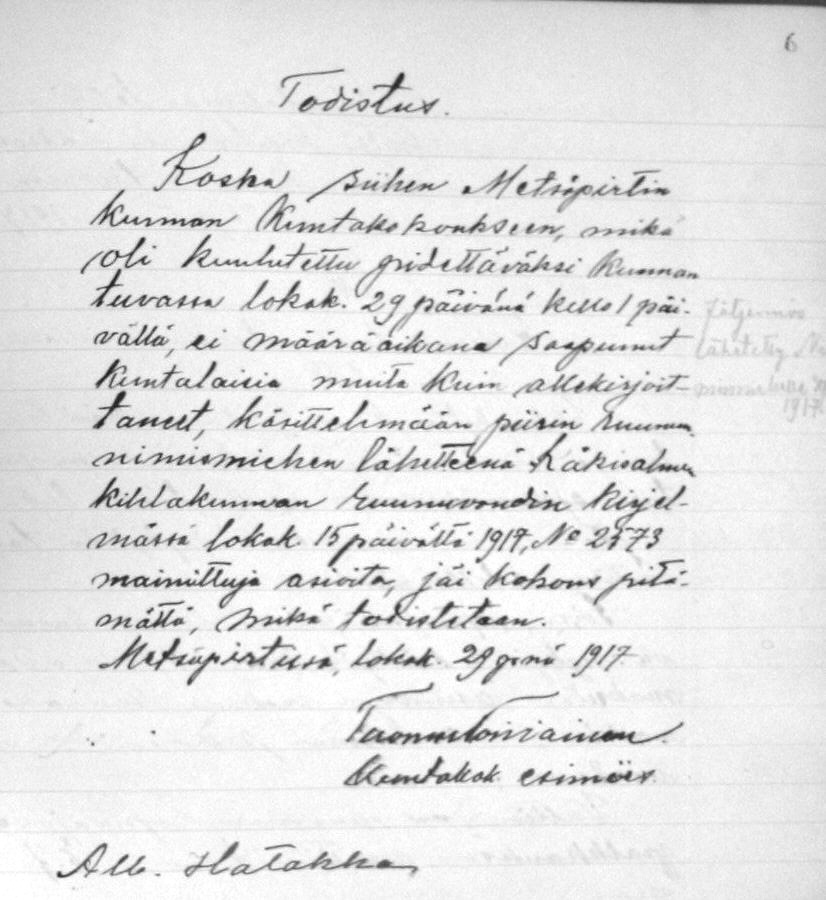 6
Todistus.
Koska siihen Metsäpirtin
kunnan Kuntakokoukseen, mikä
oli kuulutettu pidettäväksi Kunnan
tuvassa lokak. 29 päivänä kello 1 päi-
vällä, ei määräaikana saapunut
Kuntalaisia muita kuin allekirjoit-
taneet, käsittelemään piirin kruunun
nimismiehen lähetteenä Käkisalmen
kihlakunnan kruununvoudin kirjel-
mässä lokak. 15 päivältä 1917, No 2573
mainittuja asioita, jäi kokous pitä-
mättä, mikä todistetaan.
Metsäpirtissä, lokak. 29 p:nä 1917
Toiviainen.
Kuntakok. esimies.
Alb. Hatakka,
Jäljennös
lähetetty
1917